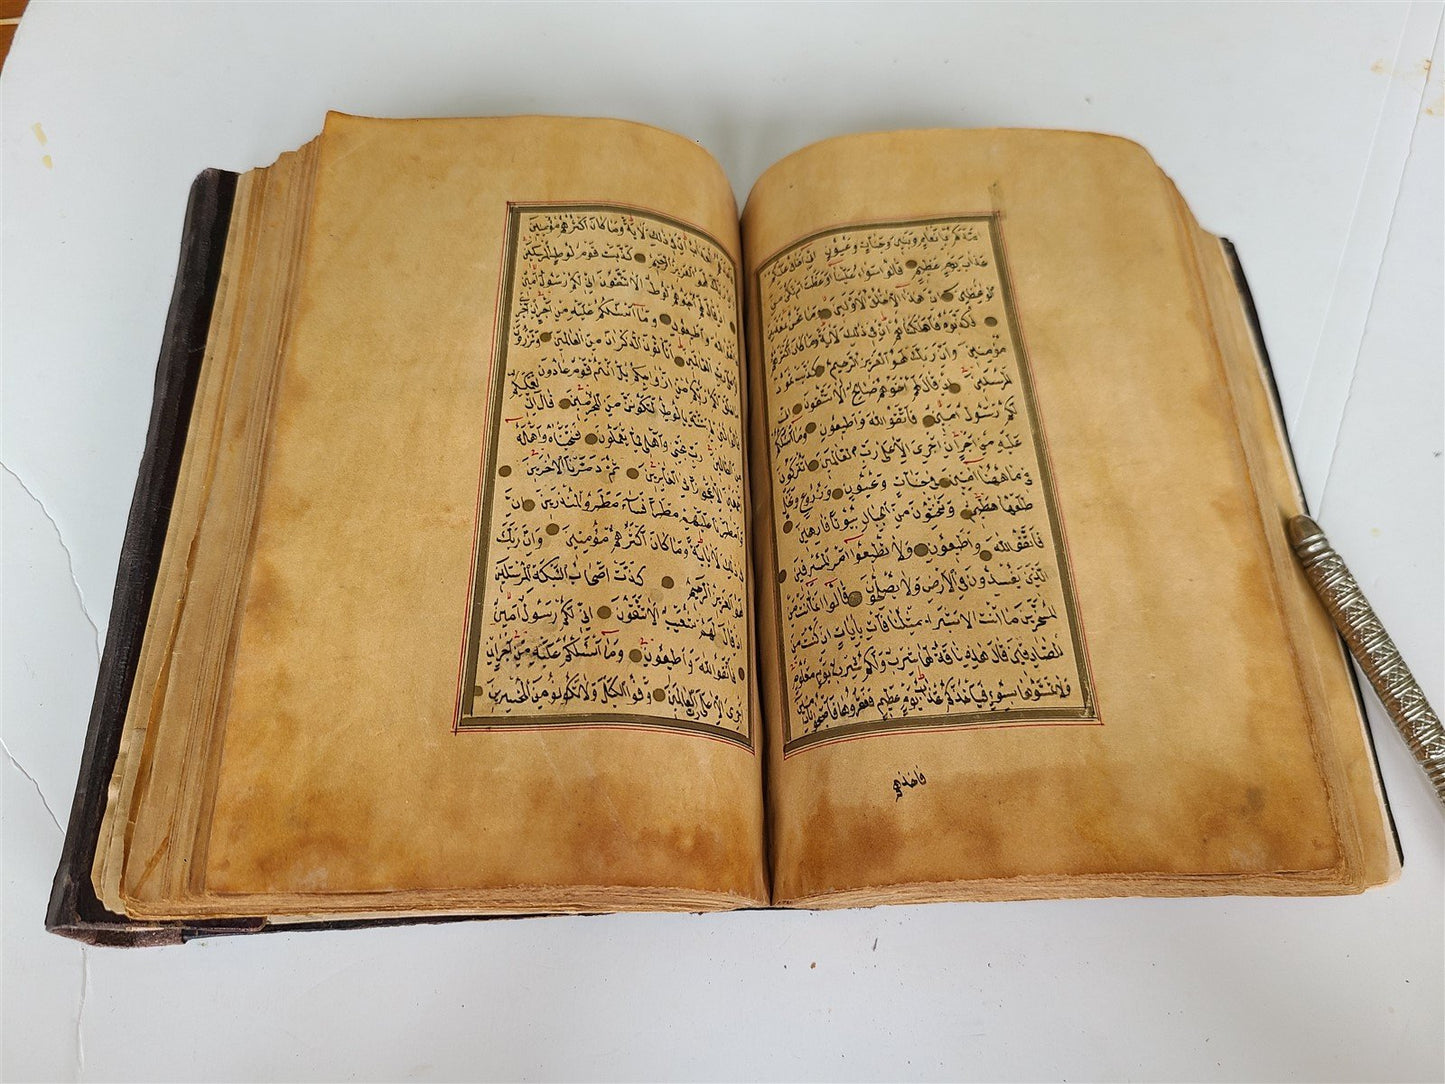 امدكم بانعام وبنين وجنات وعيون اني اخاف عليكم
عذاب يوم عظيم قالوا سواء علينا اوعظت ام لم تكن من
الواعظين ان هذا الا خلق الاولين وما نحن بمعذبين
فكذبوه فاهلكناهم ان في ذلك لاية وما كان اكثرهم
مؤمنين وان ربك لهو العزيز الرحيم كذبت ثمود
المرسلين اذ قال لهم اخوهم صالح الا تتقون اني
لكم رسول امين فاتقوا الله واطيعون وما اسئلكم
عليه من اجر ان اجري الا على رب العالمين اتتركون
في ما ههنا امنين في جنات وعيون وزروع ونخل
طلعها هضيم وتنحتون من الجبال بيوتا فارهين
فاتقوا الله واطيعون ولا تطيعوا امر المسرفين
الذين يفسدون في الارض ولا يصلحون قالوا انما انت من
المسحرين ما انت الا بشر مثلنا فات باية ان كنت من
الصادقين قال هذه ناقة لها شرب ولكم شرب يوم معلوم
ولا تمسوها بسوء فياخذكم عذاب يوم عظيم فعقروها فاصبحوا نادمين
فاخذهم
فاخذهم العذاب ان في ذلك لاية وما كان اكثرهم مؤمنين
وان ربك لهو العزيز الرحيم كذبت قوم لوط المرسلين
اذ قال لهم اخوهم لوط الا تتقون اني لكم رسول امين
فاتقوا الله واطيعون وما اسئلكم عليه من اجر ان اجري
الا على رب العالمين اتاتون الذكران من العالمين وتذرون
ما خلق لكم ربكم من ازواجكم بل انتم قوم عادون
قالوا لئن لم تنته يا لوط لتكونن من المخرجين قال اني لعملكم
من القالين رب نجني واهلي مما يعملون فنجيناه واهله
اجمعين الا عجوزا في الغابرين ثم دمرنا الاخرين
وامطرنا عليهم مطرا فساء مطر المنذرين ان
في ذلك لاية وما كان اكثرهم مؤمنين وان ربك
لهو العزيز الرحيم كذب اصحاب الئيكة المرسلين
اذ قال لهم شعيب الا تتقون اني لكم رسول امين
فاتقوا الله واطيعون وما اسئلكم عليه من اجر ان
اجري الا على رب العالمين اوفوا الكيل ولا تكونوا من المخسرين